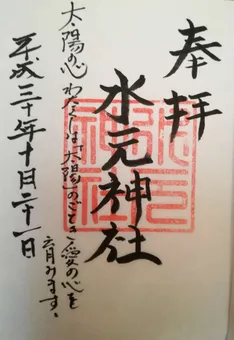 奉拝
水元神社
太陽の心 わたくしは「太陽」のごとき愛の心を
育みます。
平成三十年十月二十一日